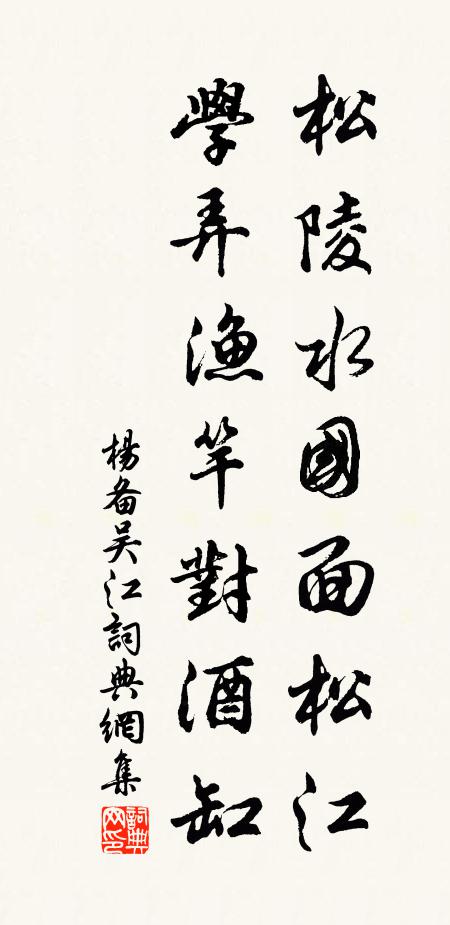 松陵水國面松江
學弄漁竿對酒缸
楊备吴江詞典網集
詞典网印